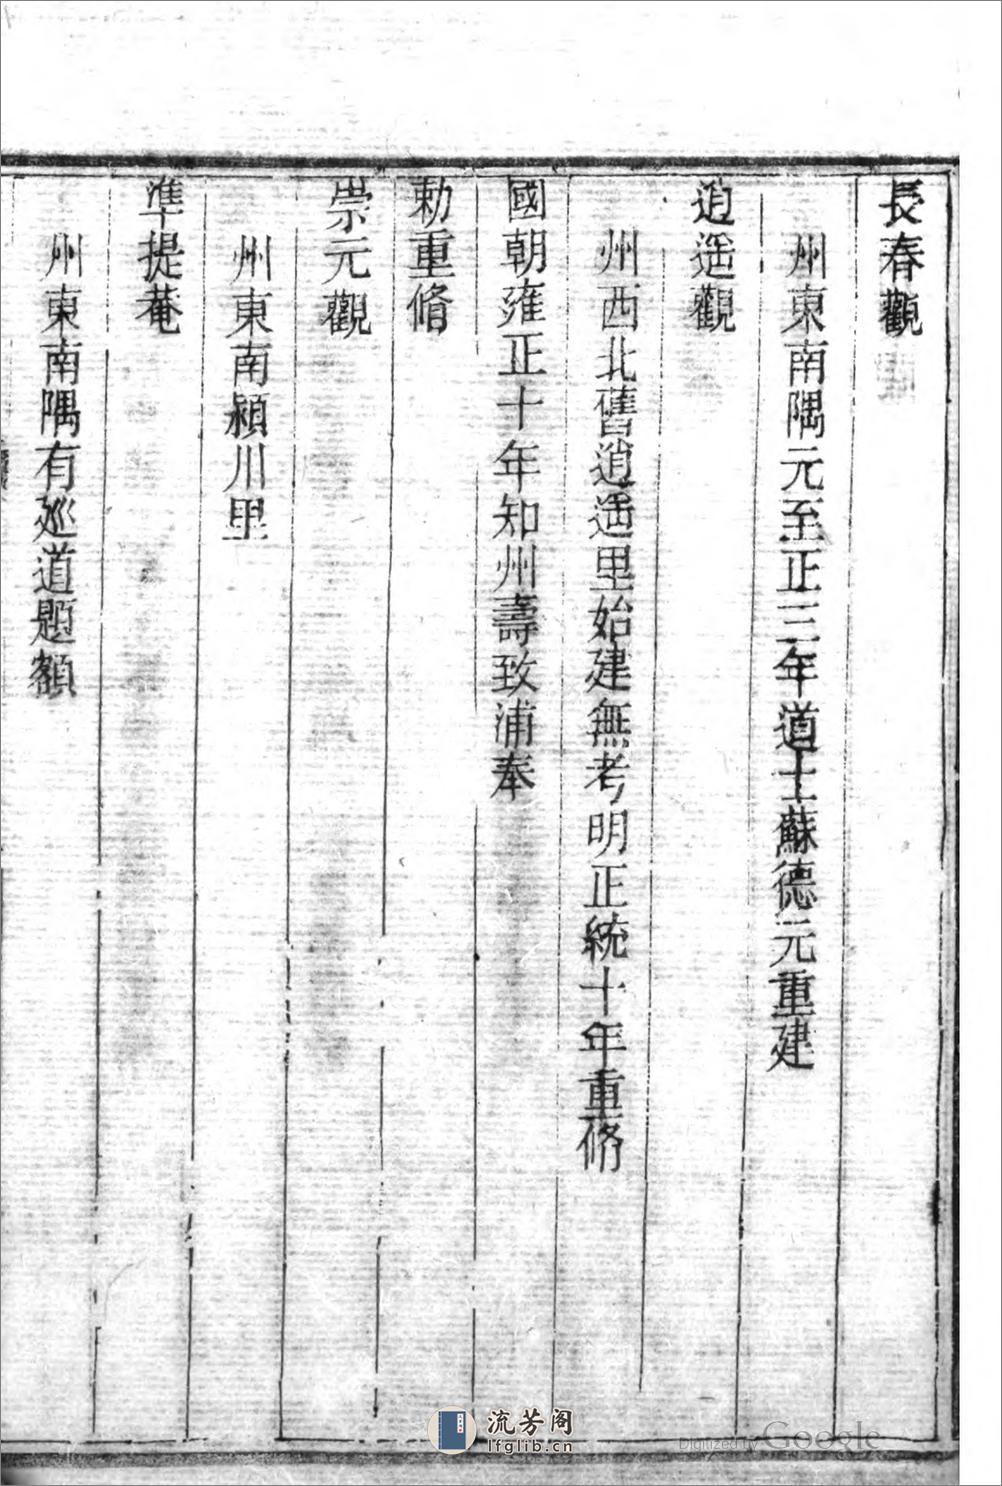 長春觀
州東南隅元至正三年道士蘇德元重建
逍遥觀
州西北舊逍遥里始建無考明正統十年重脩
國朝雍正十年知州壽致浦奉
勅重脩
崇元觀
州東南潁川里
準提菴
州東南隅有巡道題額
流芳阁
lfglib.cn
Digitized by Google